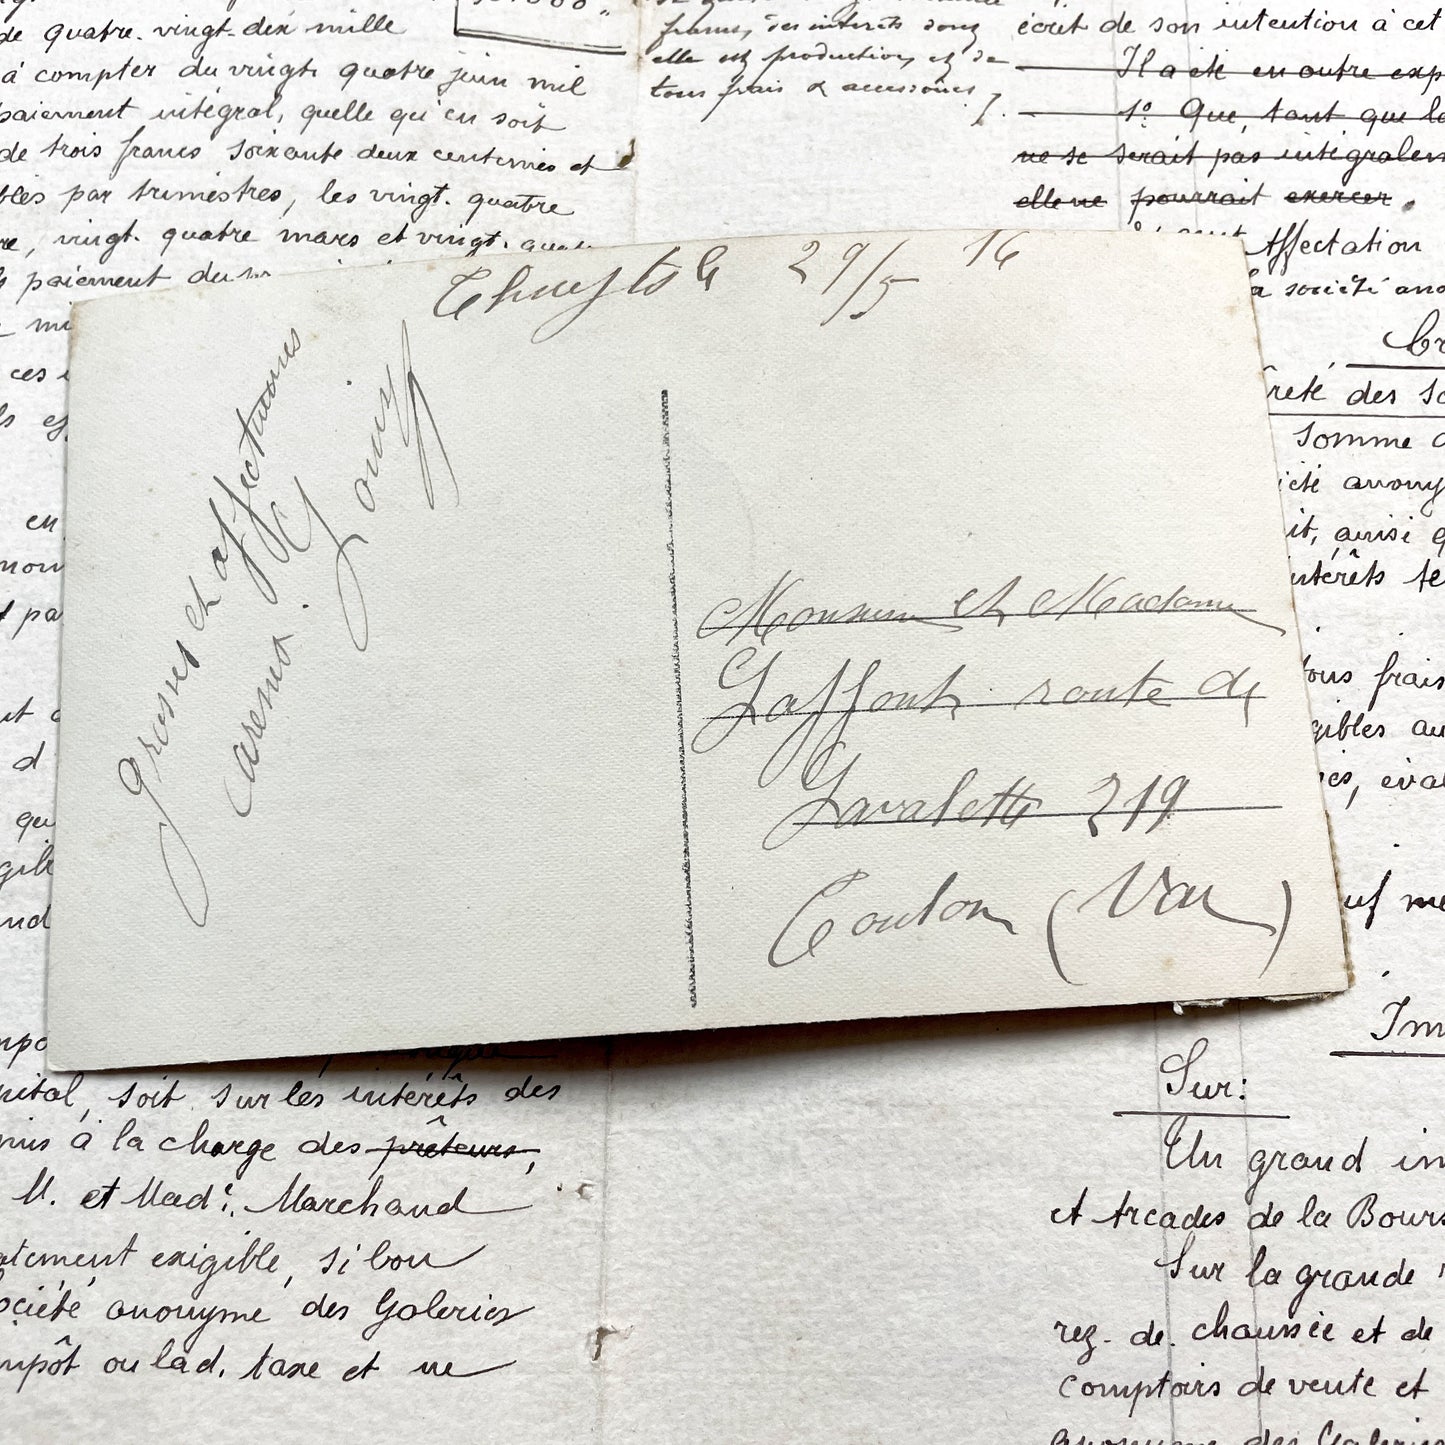 de quatre-vingt-dix mille
à compter du vingt quatre juin mil
paiement intégral, quelle qu'en soit
de trois francs soixante deux centimes et
par trimestres, les vingt-quatre
vingt-quatre mars et vingt-
paiement du
francs, ses intérêts dong
elle est production, et de
tous frais & accessoires
écrit de son intention à cet
Il a été en outre exp
1° Que, tant que la
ne se serait pas intégralem
elle ne pourrait exercer.
Affectation
la société ano
reté des So
Somme
anony
ainsi
intérêts
Thueyts le 29/5 16
Grosses et affectueuses
caresses.
Louis
Monsieur et Madame
Laffont route de
Lavalette 219
Toulon (Var)
en
ous frais
gibles au
soit sur les intérêts des
mis à la charge des prêteurs,
M. et Made. Marchand
exigible, si bon
société anonyme des Galeries
impôt ou lad. taxe et ne
Im
Sur:
Un grand im
et Arcades de la Bours
Sur la grande
rez-de-chaussée et de
comptoirs de vente et
anonyme des Galeries